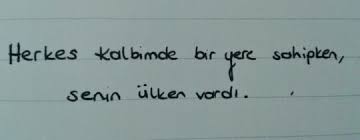 Herkes kalbimde bir yere sahipken,
senin ülken vardı.